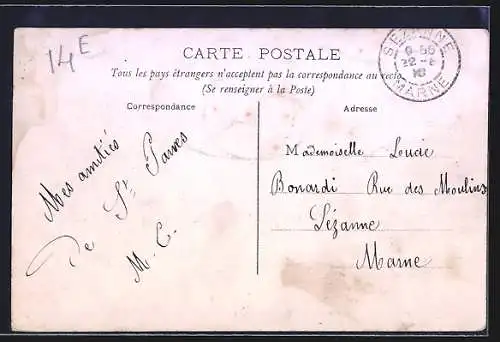 14E
CARTE POSTALE
Tous les pays étrangers n'acceptent pas la correspondance au recto
(Se renseigner à la Poste)
Correspondance
Mes amitiés
De St Pares
M. C.
SEZANNE
MARNE
Adresse
Mademoiselle Lucie
Bonardi Rue des Moulins
Sézanne
Marne